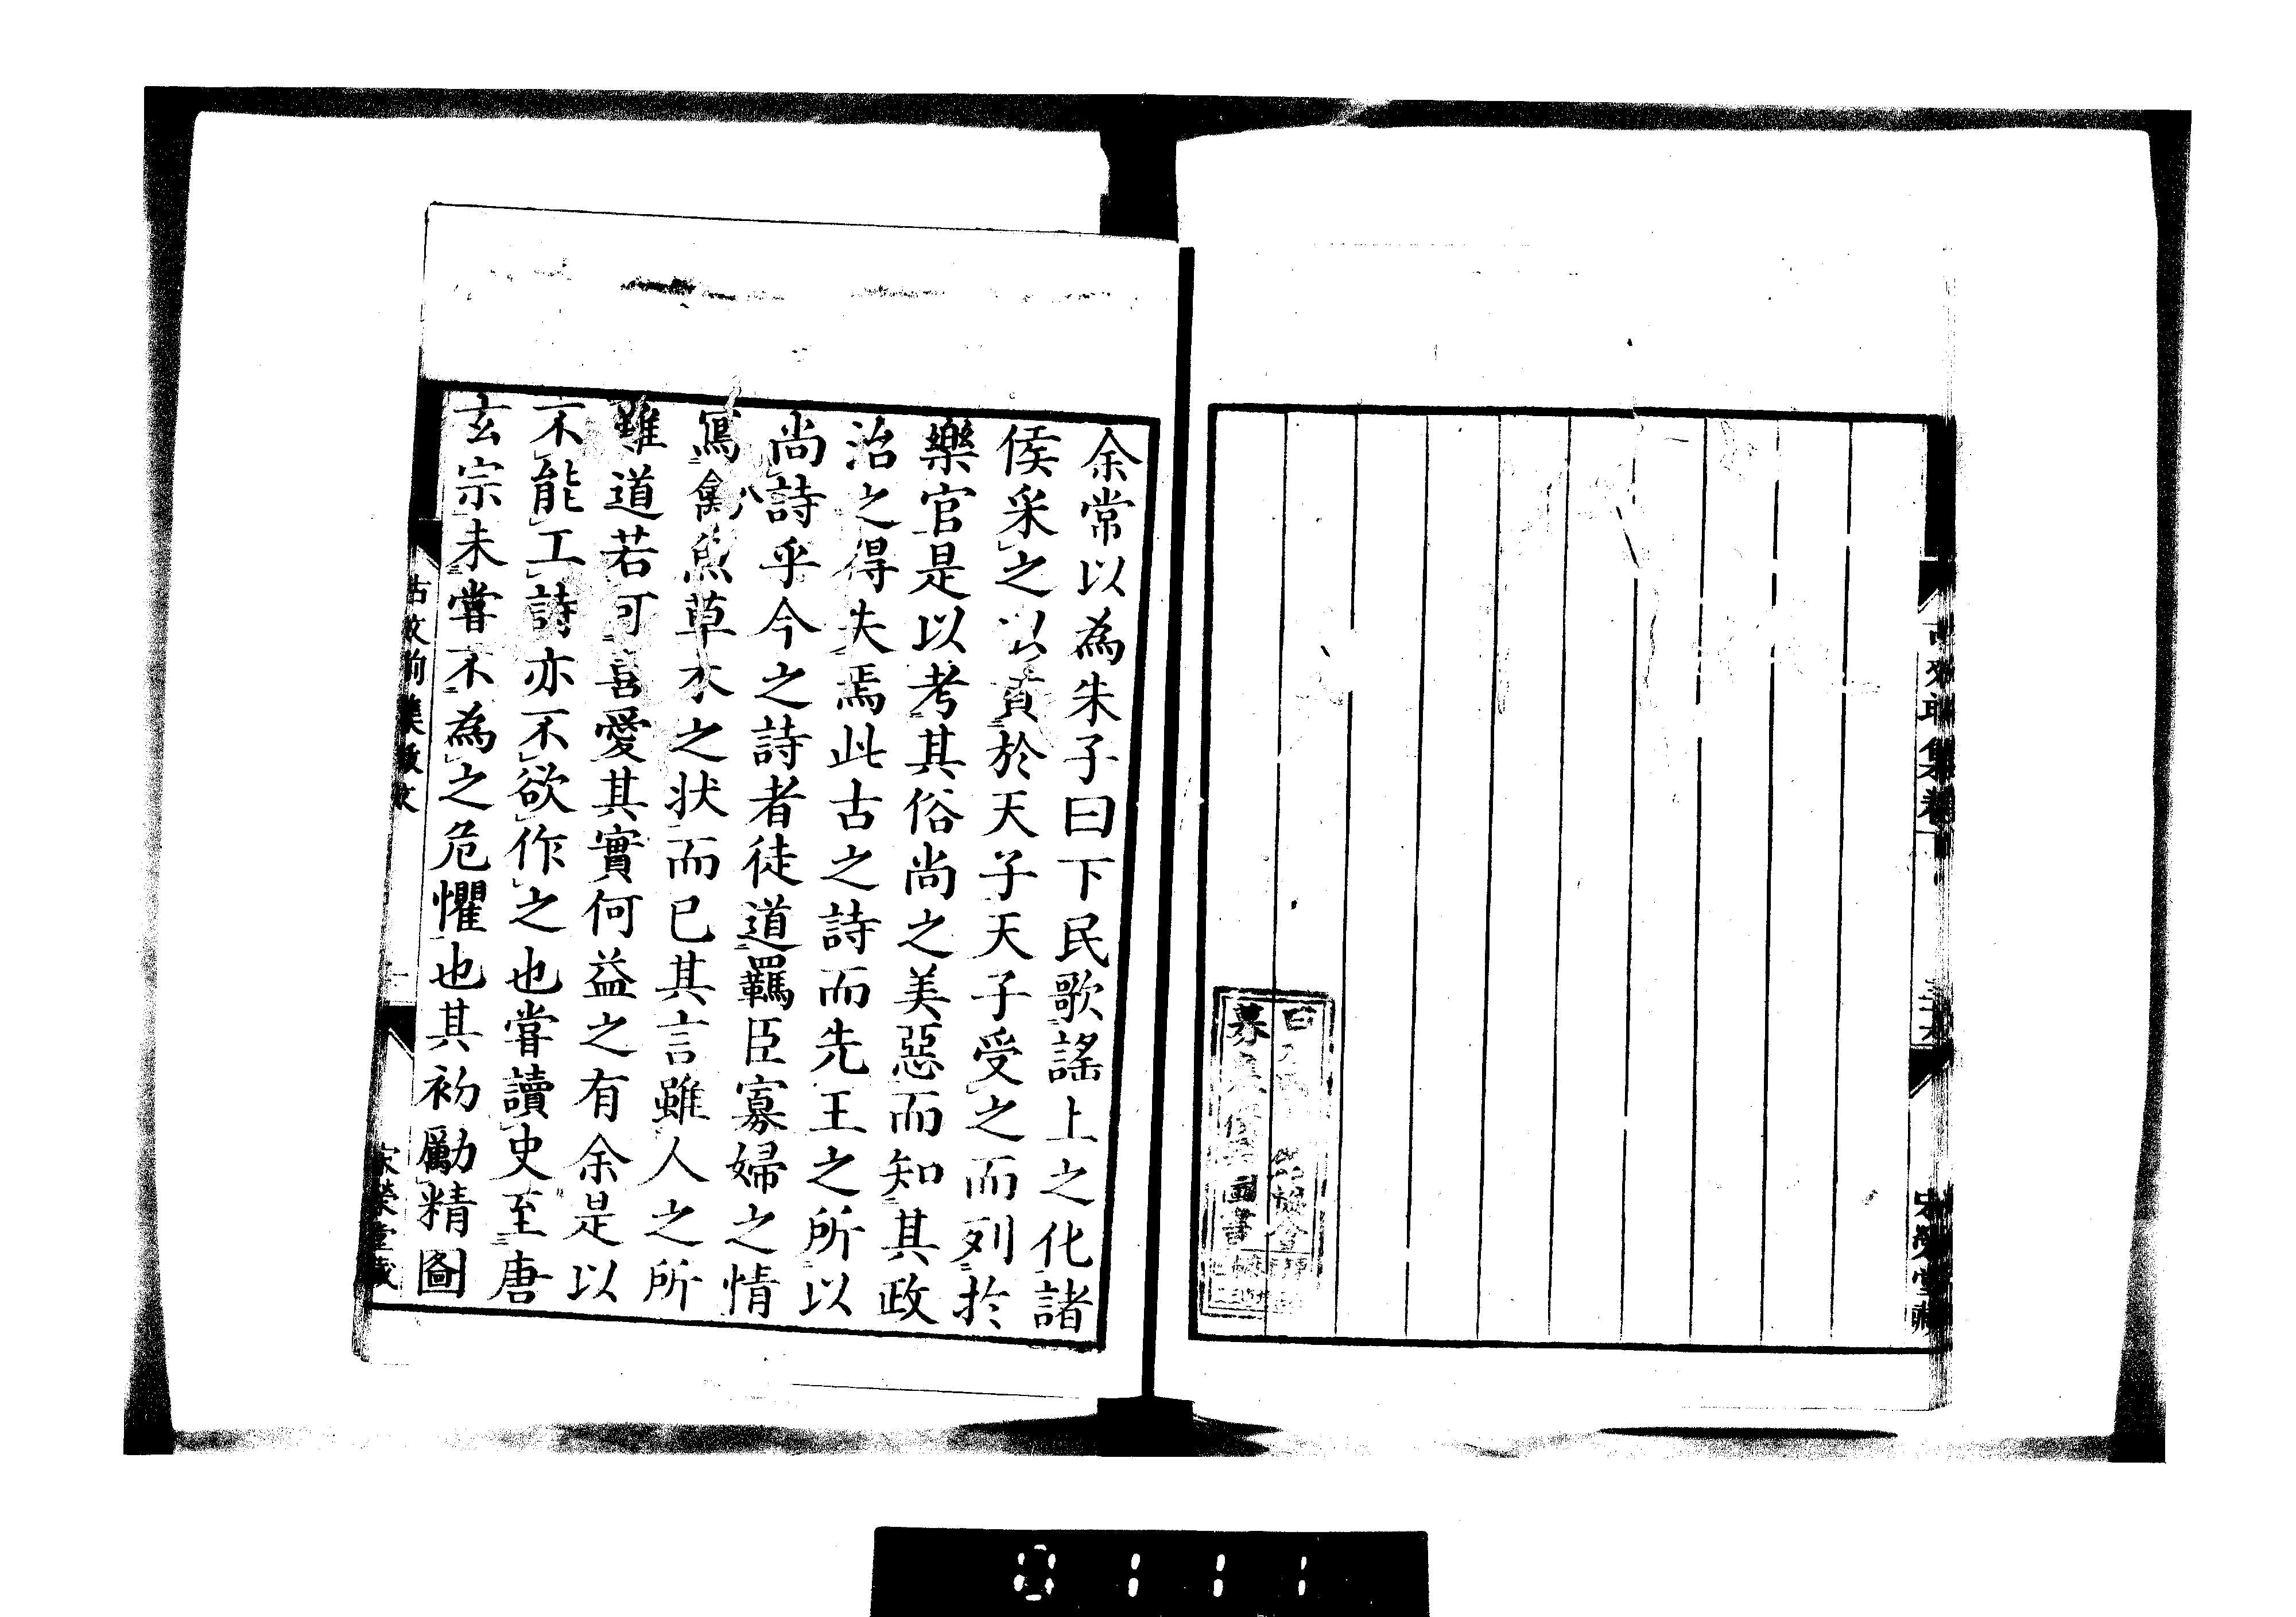 余常以為朱子曰下民歌謠上之化諸
侯采之以貢於天子天子受之而列於
樂官是以考其俗尚之美惡而知其政
治之得失焉此古之詩而先王之所以
尚詩乎今之詩者徒道羈臣寡婦之情
寫禽魚草木之状而已其言雖人之所
雖道若可喜愛其實何益之有余是以
不能工詩亦不欲作之也嘗讀史至唐
玄宗未嘗不為之危懼也其初勵精圖
古文前集敘文
一
宋榮堂藏
集巻
宋榮堂藏
圖書
0111